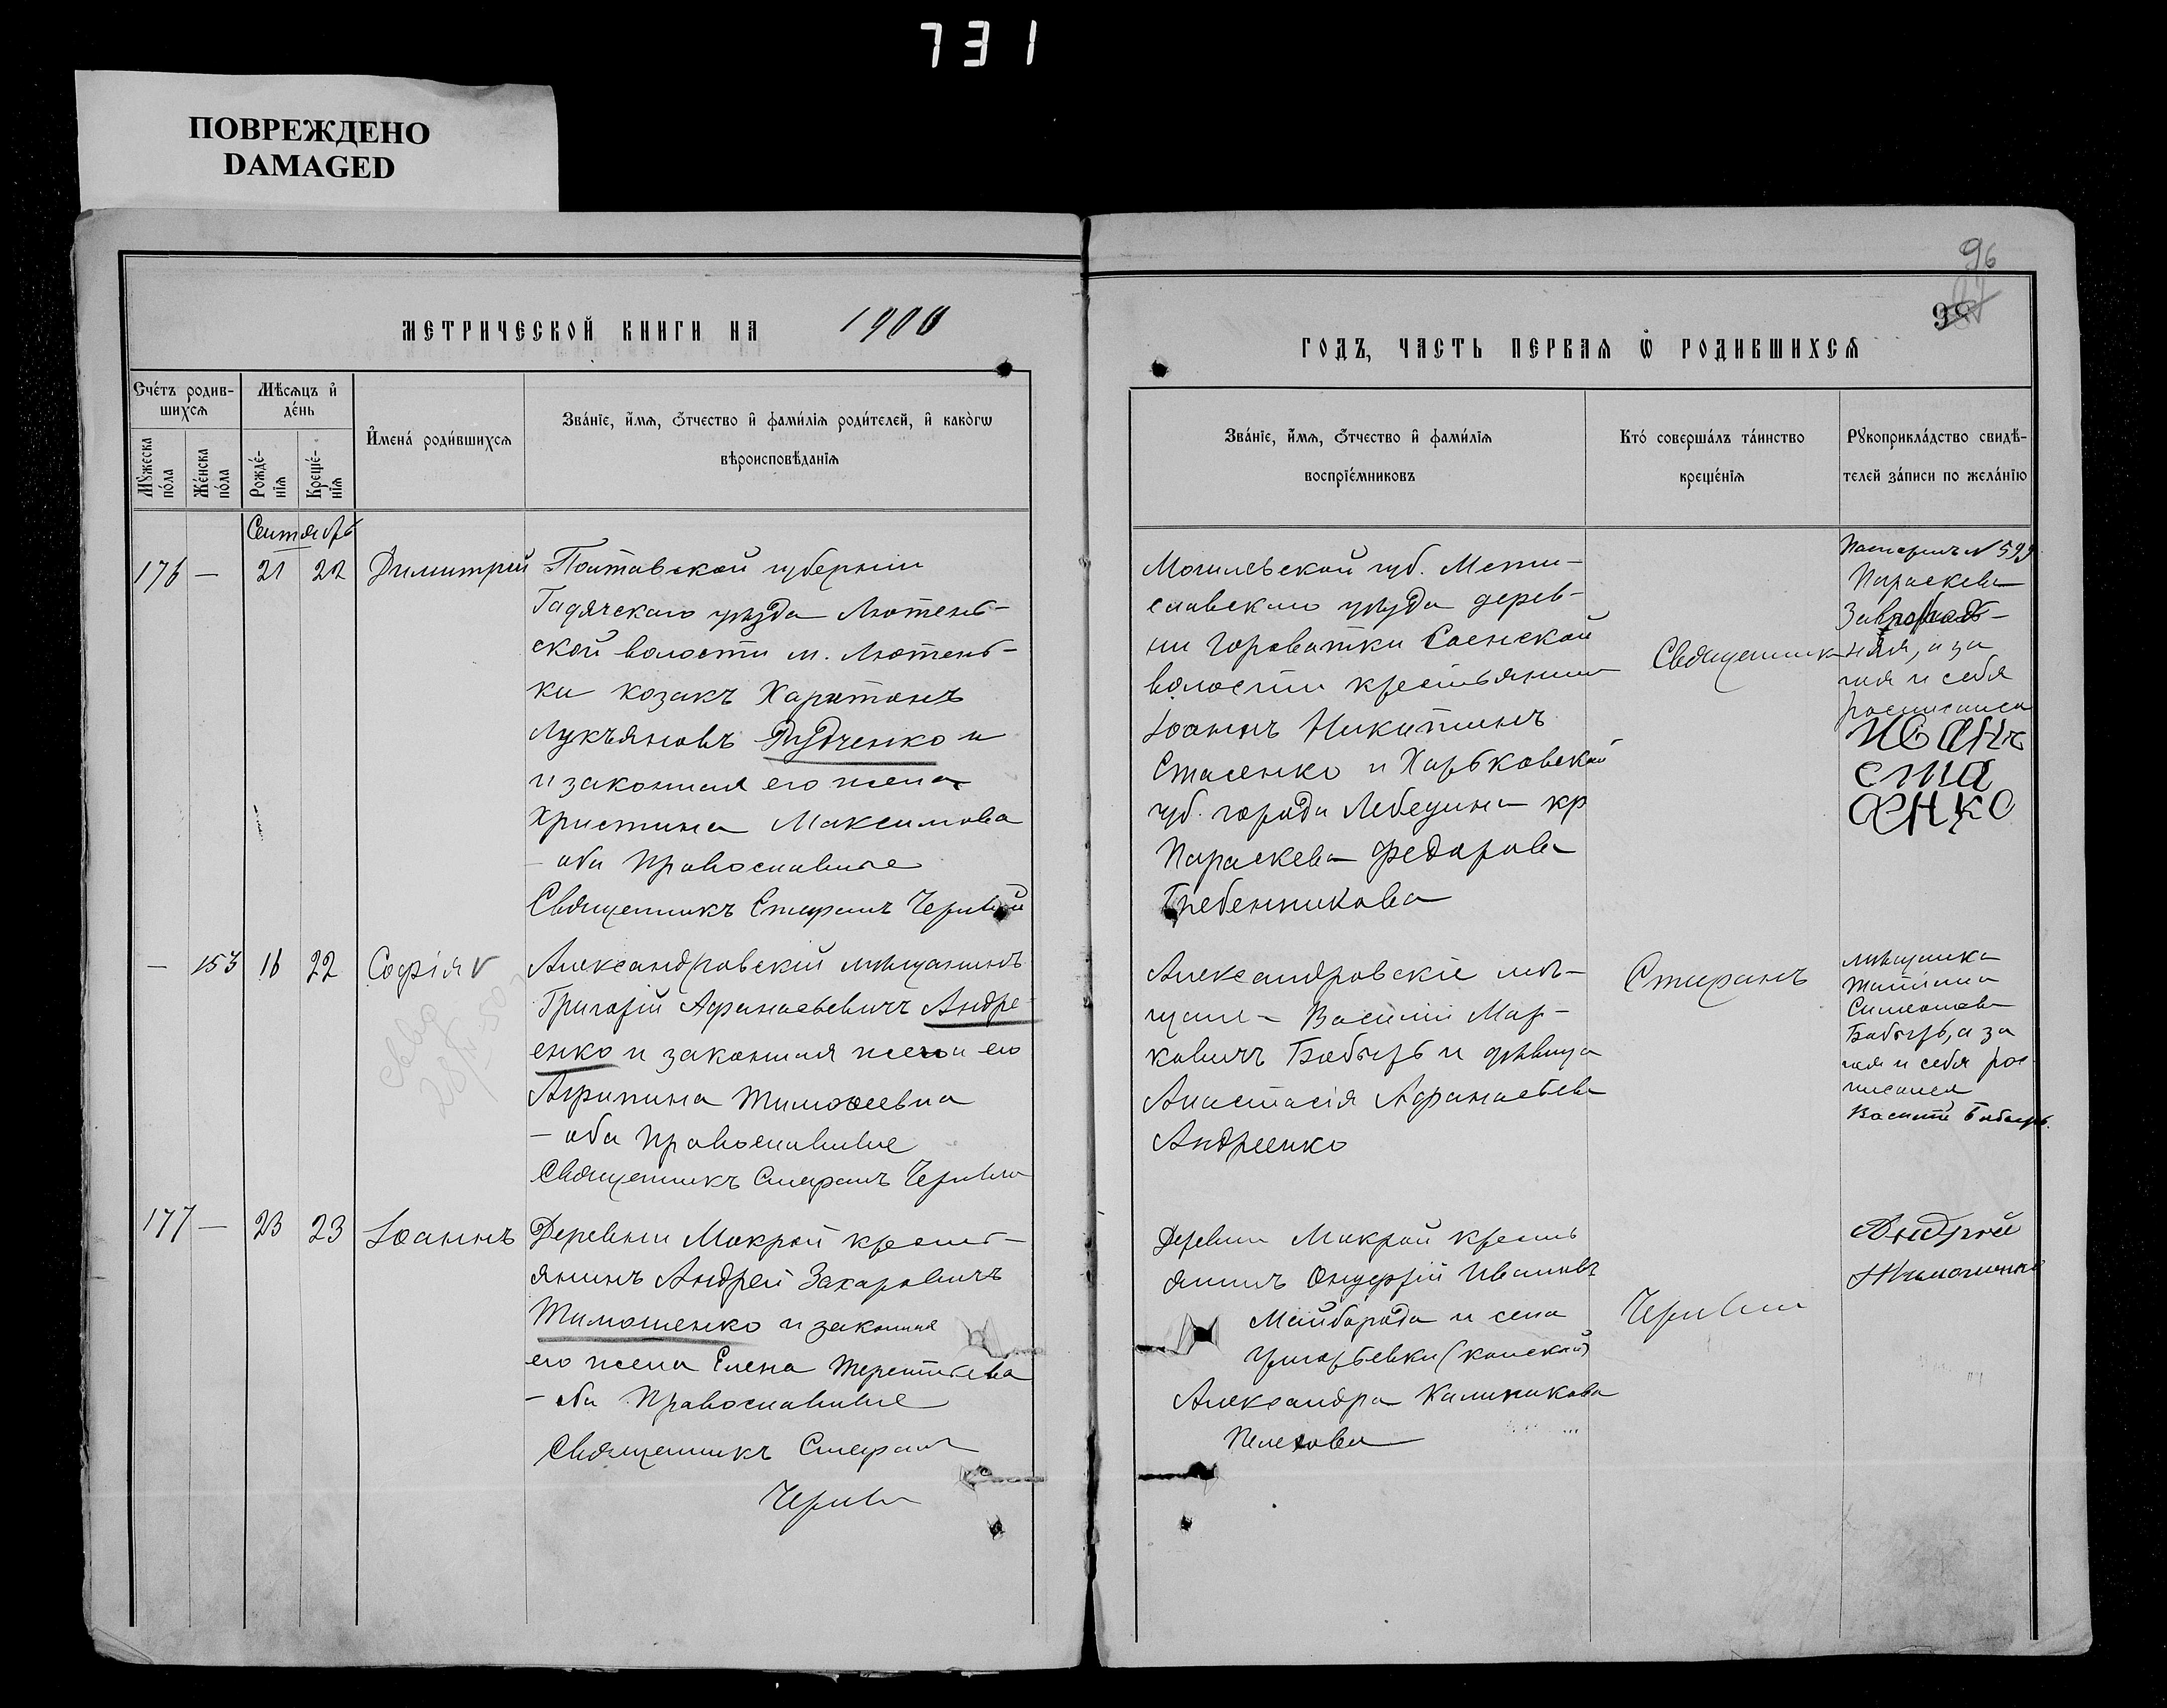 731
ПОВРЕЖДЕНО
DAMAGED
96
МЕТРИЧЕСКОЙ КНИГИ НА 1900
ГОДЪ, ЧАСТЬ ПЕРВАѦ Ѽ РОДИВШИХСѦ
Сче́тъ родив-
шихсѧ
Мꙋжеска
по́ла
Же́нска
по́ла
Мѣ́сѧцъ и҆
де́нь
Рожде́-
нїѧ
Креще́-
нїѧ
И҆мена̀ роди́вшихсѧ
Зва́нїе, и҆́мѧ, ѻ҆́тчество и҆ фами́лїѧ роди́телей, и҆ како́гѡ
вѣроисповѣ́данїѧ
Зва́нїе, и҆́мѧ, ѻ҆́тчество и҆ фами́лїѧ
воспрїе́мниковъ
Кто́ соверша́лъ та́инство
креще́нїѧ
Рꙋкоприкла́дство свидѣ́-
телей за́писи по жела́нїю
Сентябрь
176 — 21 22 Димитрій
Полтавской губерніи
Гадячскаго уѣзда Лютень-
ской волости м. Лютень-
ки козакъ Харитонъ
Лукъяновъ Рудченко и
и законная его жена
Христина Максимова
— оба Православные
Священникъ Стефанъ
Могилевской губ. Мсти-
славскаго уѣзда дерев-
ни Гороватки Соенской
волости крестьянинъ
Іоаннъ Никитинъ
Стасенко и Харьковской
губ. города Лебедина кр
Параскева Федорова
Гребенникова
Священник
Параскева
няя, а за
нея и себя
росписался
ИВАНЪ
СТА
ЕНКО
— 153 16 22 Софія v
Александровскій мѣщанинъ
Григорій Афанасьевичъ Андре-
енко и законная жена его
Агрипина Тимоѳеевна
— оба Православные
Священникъ Стефанъ
Александровскіе мѣ-
щане — Василій Мар-
ковичъ Бабырь и дѣвица
Анастасія Афанасьева
Андреенко
Стефанъ
мѣщанка
Татіана
Симеонова
Бабырь, а за
нея и себя рос-
писался
Василій Бабырь.
177 — 23 23 Іоаннъ
Деревни Мокрой крест-
янинъ Андрей Захаровичъ
Тимошенко и законная
его жена Елена Терентьева
— оба Православные
Священникъ Стефанъ
Деревни Мокрой кресть
янинъ Онуфрій Ивановъ
Майборода и села
Григорьевки (конской)
Александра Калиникова
Андрей
Тимошенко